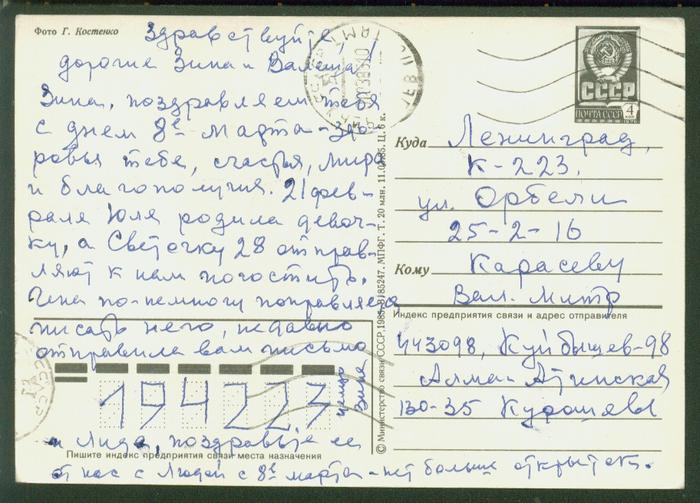 Фото Г. Костенко
Здравствуйте,
дорогие Зина и Валенти!
Зина, поздравляем тебя
с днем 8е марта - здо-
ровья тебе, счастья, мира
и благополучия. 21 фев-
раля Юля родила девоч-
ку, а Светочку 28 отправ-
ляют к нам погостить.
по-немногу поправляется
писать него, недавно
отправила вам письмо
целую
Зина
и Лида, поздравьте ее
от нас с Людой с 8е марта - нет больше открыток.
СССР
ПОЧТА СССР
4
Куда
Ленинград,
К-223,
ул. Орбели
25-2-16
Кому
Карасеву
Вал. Митр
Индекс предприятия связи и адрес отправителя
443098, Куйбышев-98
Алма-Атинская
130-35
194223
Пишите индекс предприятия связи места назначения
© Министерство связи СССР. 1985. З. 185247. МПФГ. Т. 20 млн. 11.01.85. Ц. 6 к.